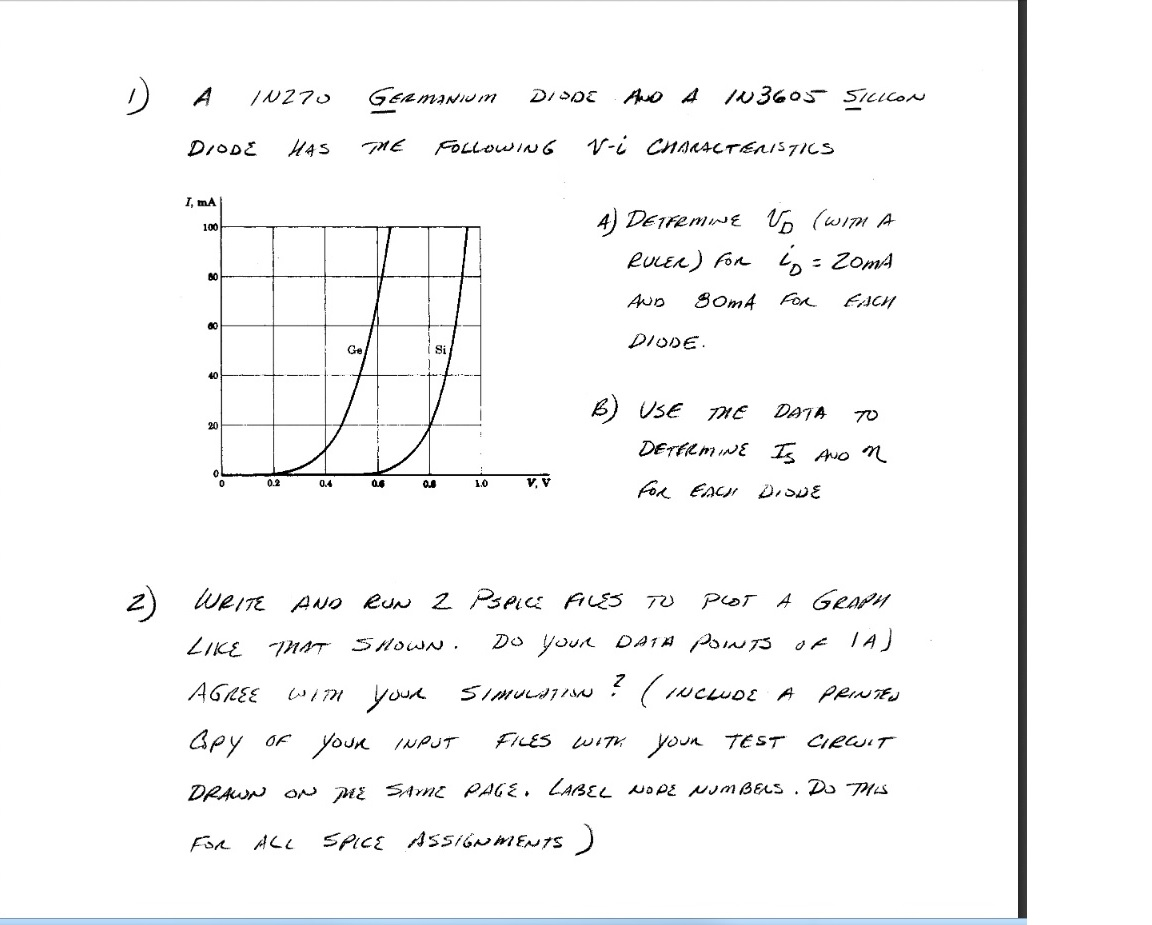 1) A 1N270 GERMANIUM DIODE AND A 1N3605 SILICON
DIODE HAS THE FOLLOWING V-i CHARACTERISTICS
I, mA
100
80
60
40
20
0
Ge
Si
0 0.2 0.4 0.6 0.8 1.0 V, V
A) DETERMINE VD (WITH A
RULER) FOR iD = 20mA
AND 80mA FOR EACH
DIODE.
B) USE THE DATA TO
DETERMINE IS AND n
FOR EACH DIODE
2) WRITE AND RUN 2 PSPICE FILES TO PLOT A GRAPH
LIKE THAT SHOWN. DO YOUR DATA POINTS OF 1A)
AGREE WITH YOUR SIMULATION? (INCLUDE A PRINTED
COPY OF YOUR INPUT FILES WITH YOUR TEST CIRCUIT
DRAWN ON THE SAME PAGE. LABEL NODE NUMBERS. DO THIS
FOR ALL SPICE ASSIGNMENTS)